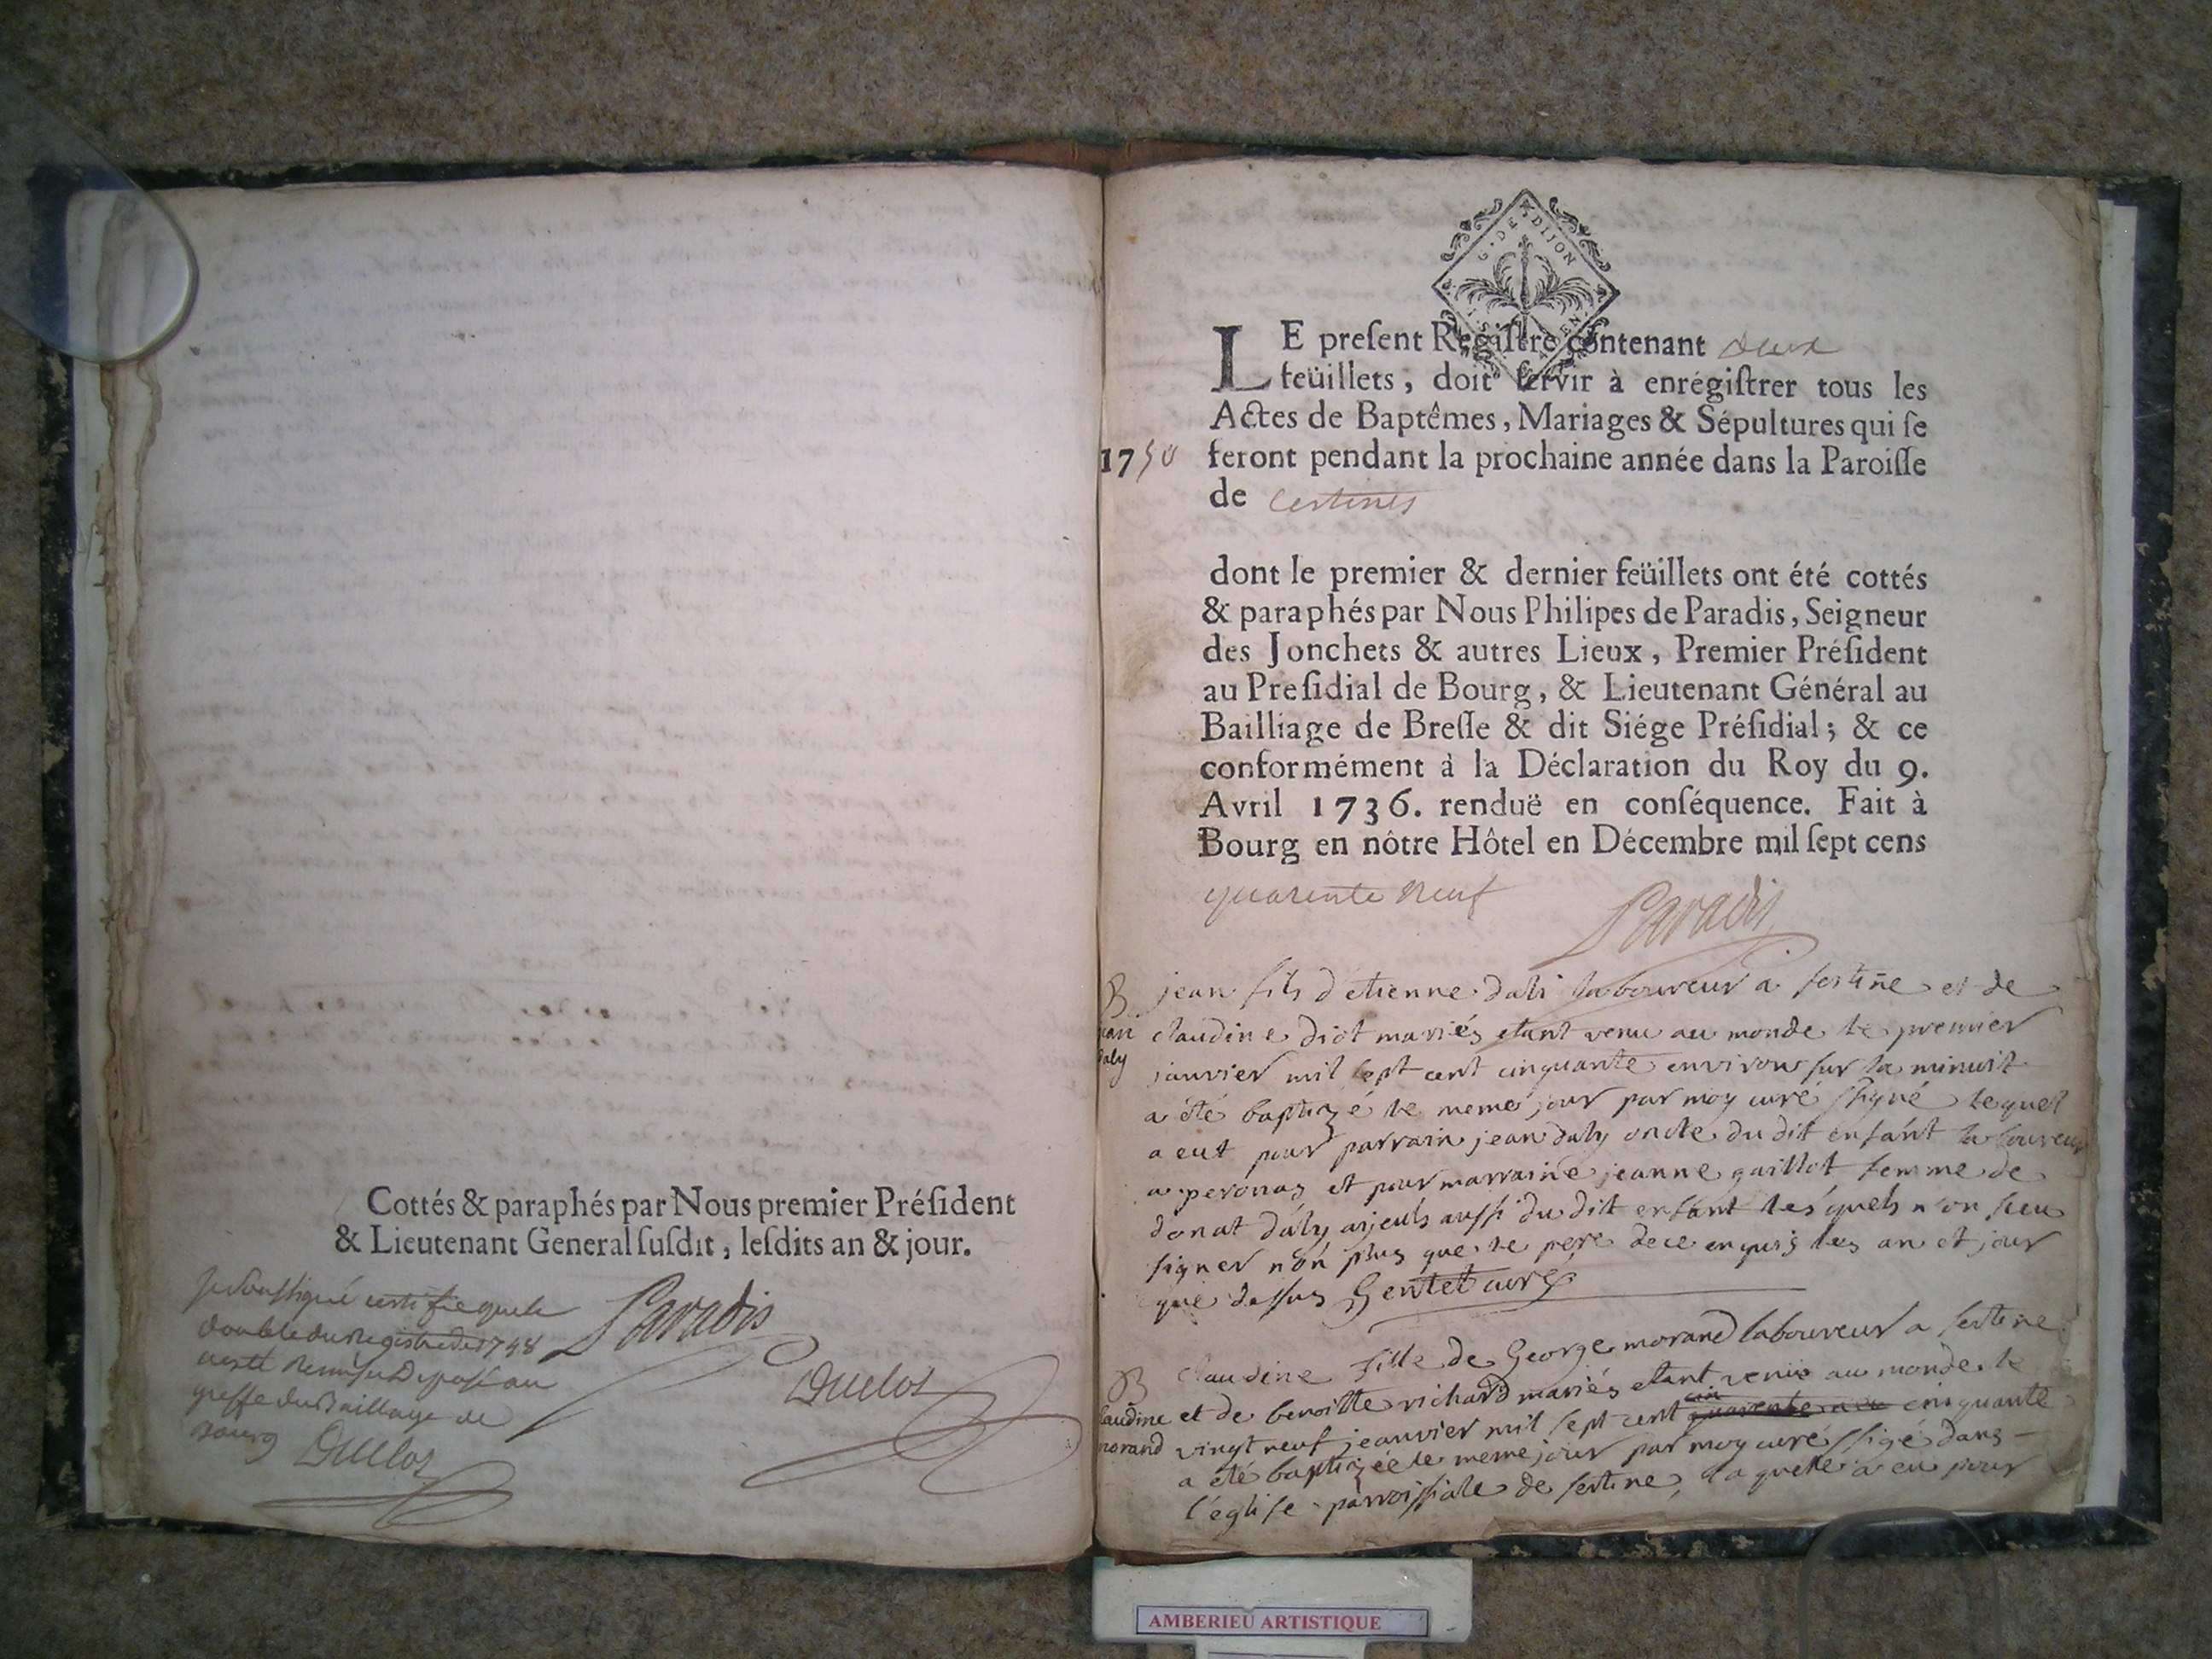 Cottés & paraphés par Nous premier Préſident
& Lieutenant General ſuſdit, leſdits an & jour.
Je Soussigné certifie que le
double du Registre de 1748
a esté Remis Deposé au
greffe du Bailliage de
Bourg Duclos
Paradis
Duclos
G. DE DIJON
LE preſent Regiſtre contenant deux
feüillets, doit ſervir à enrégiſtrer tous les
Actes de Baptêmes, Mariages & Sépultures qui ſe
1750 feront pendant la prochaine année dans la Paroiſſe
de Certines
dont le premier & dernier feüillets ont été cottés
& paraphés par Nous Philipes de Paradis, Seigneur
des Jonchets & autres Lieux, Premier Préſident
au Preſidial de Bourg, & Lieutenant Général au
Bailliage de Breſſe & dit Siége Préſidial; & ce
conformément à la Déclaration du Roy du 9.
Avril 1736. renduë en conſéquence. Fait à
Bourg en nôtre Hôtel en Décembre mil ſept cens
quarente neuf Paradis
B jean fils d'etienne dali laboureur a sertine et de
jean claudine diot mariés etant venu au monde le premier
daly janvier mil sept cent cinquante environ sur la minuit
a été baptizé le meme jour par moy curé ssigné lequel
a eut pour parrain jean daly oncle du dit enfant laboureur
a peronas et pour marraine jeanne gaillot femme de
donat daly aijeuls aussi du dit enfant lesquels n'on sceu
signer non plus que le pere de ce enquis les an et jour
que dessus Gentet curé
B Claudine fille de George morand laboureur a sertine
claudine et de benoitte richard mariés etant venue au monde le
morand vingt neuf jeanvier mil sept cent cinquante
a été baptizée le meme jour par moy curé ssigé dans
l'église parroissiale de sertine, laquelle a eu pour
AMBERIEU ARTISTIQUE